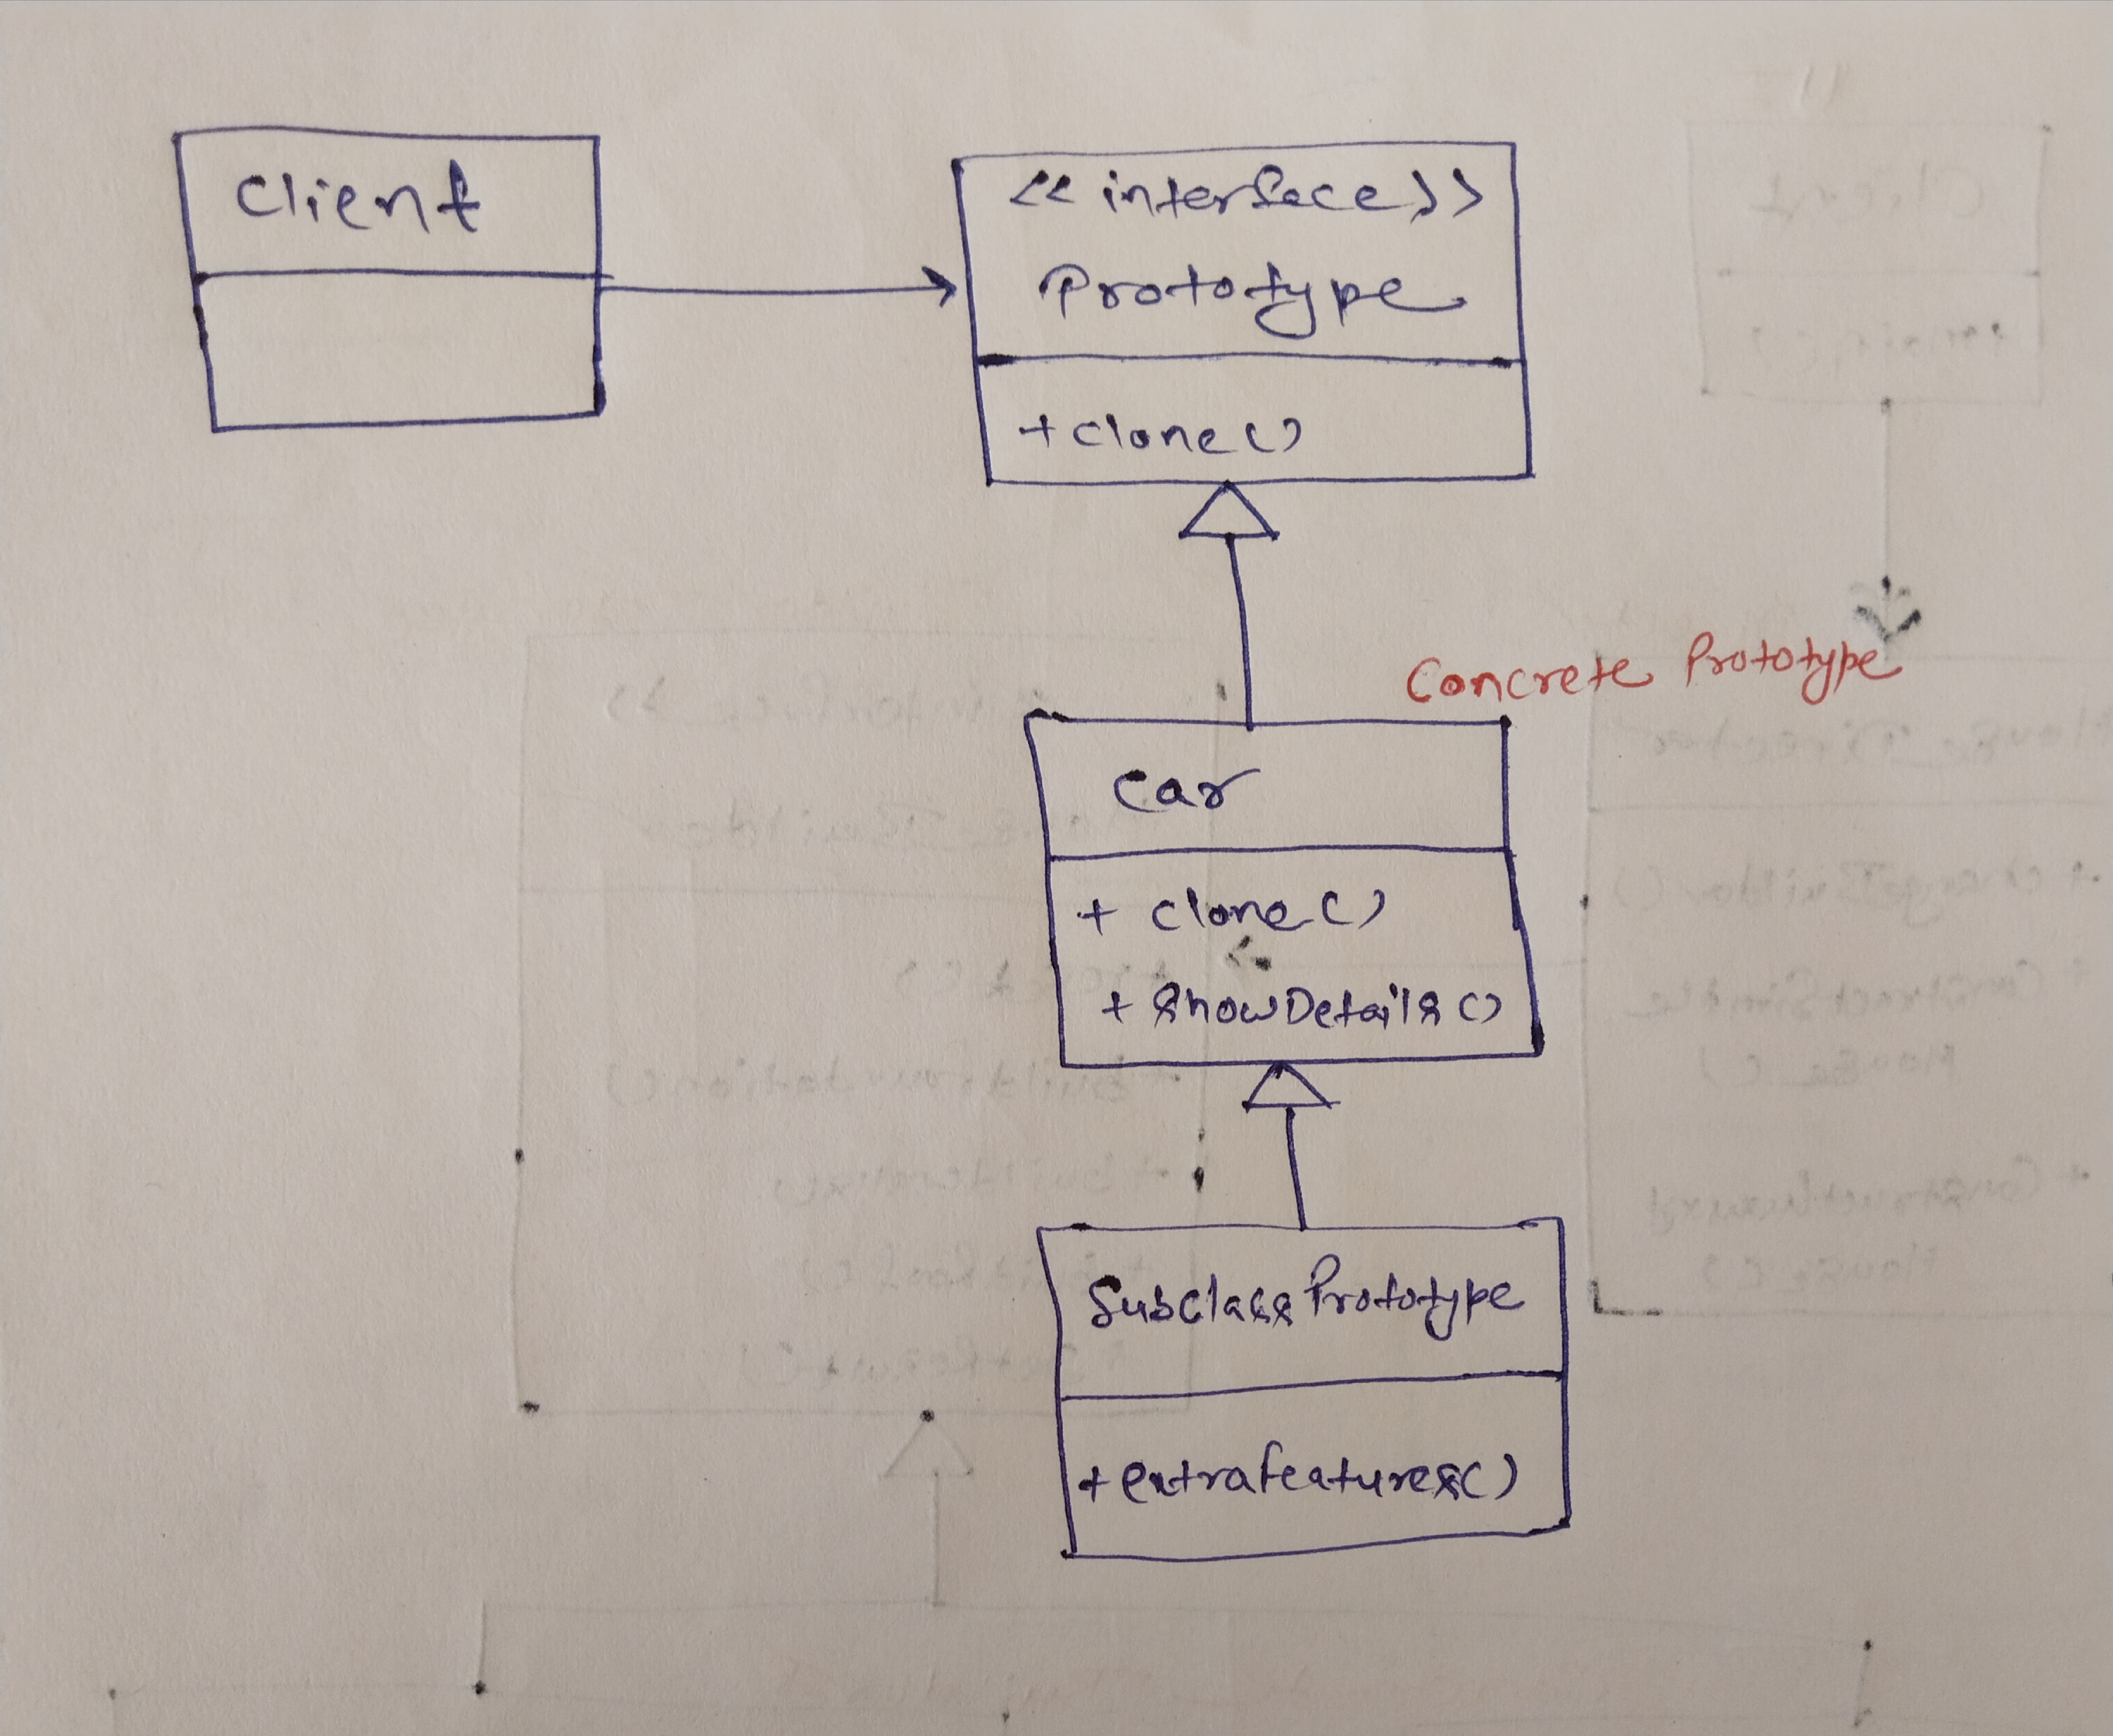 Client
<<interface>>
Prototype
+clone()
Concrete Prototype
Car
+ clone()
+ showDetails()
SubclassPrototype
+extrafeatures()